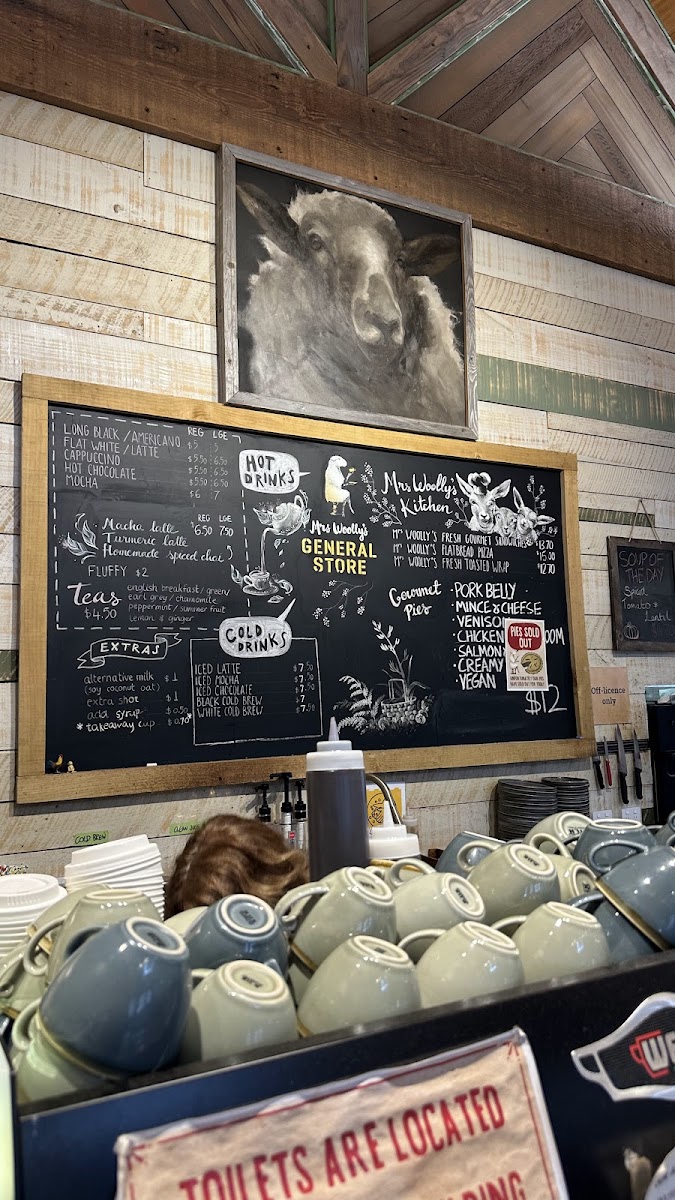 REG LGE
LONG BLACK / AMERICANO $5 : 5
FLAT WHITE / LATTE $5.50 : 6.50
CAPPUCCINO $5.50 : 6.50
HOT CHOCOLATE $5.50 : 6.50
MOCHA $6 : 7
HOT DRINKS
REG LGE
Macha latte $6.50 7.50
Turmeric latte
Homemade spiced chai
FLUFFY $2
Teas $4.50
english breakfast / green /
earl grey / chamomile
peppermint / summer fruit
lemon & ginger
EXTRAS
alternative milk $1
(soy coconut oat)
extra shot $1
add syrup $0.50
* takeaway cup $0.70
COLD DRINKS
ICED LATTE $7.50
ICED MOCHA $7.50
ICED CHOCOLATE $7.50
BLACK COLD BREW $7
WHITE COLD BREW $7.50
Mrs Woolly's
GENERAL
STORE
Mrs Woolly's
Kitchen
Mrs WOOLLY'S FRESH GOURMET SANDWICHES $13.70
Mrs WOOLLY'S FLATBREAD PIZZA $15.50
Mrs WOOLLY'S FRESH TOASTED WRAP $12.70
Gourmet
Pies
· PORK BELLY
· MINCE & CHEESE
· VENISON
· CHICKEN OOM
· SALMON
· CREAMY
· VEGAN
$12
PIES SOLD
OUT
SOUP OF
THE DAY
Spiced
Tomato &
Lentil
Off-licence
only
COLD BREW
TOILETS ARE LOCATED